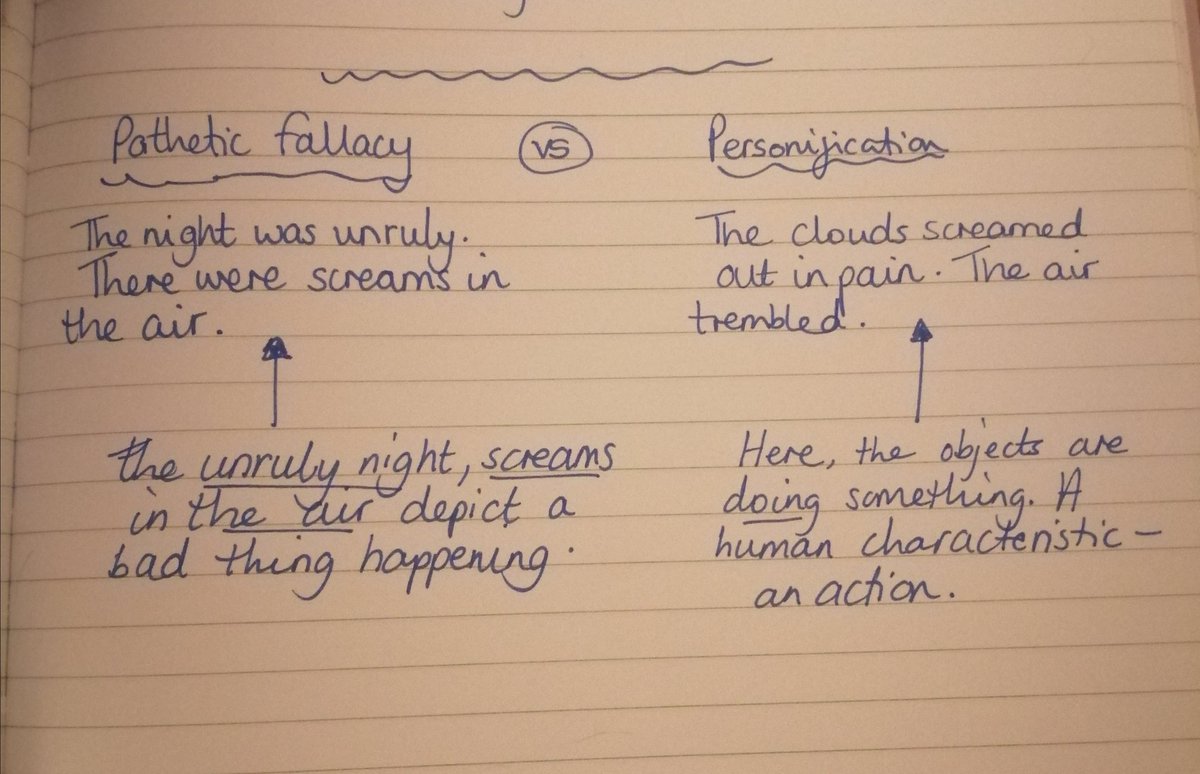 Pathetic fallacy vs Personification
The night was unruly.
There were screams in
the air.
The clouds screamed
out in pain. The air
trembled.
the unruly night, screams
in the air depict a
bad thing happening.
Here, the objects are
doing something. A
human characteristic –
an action.